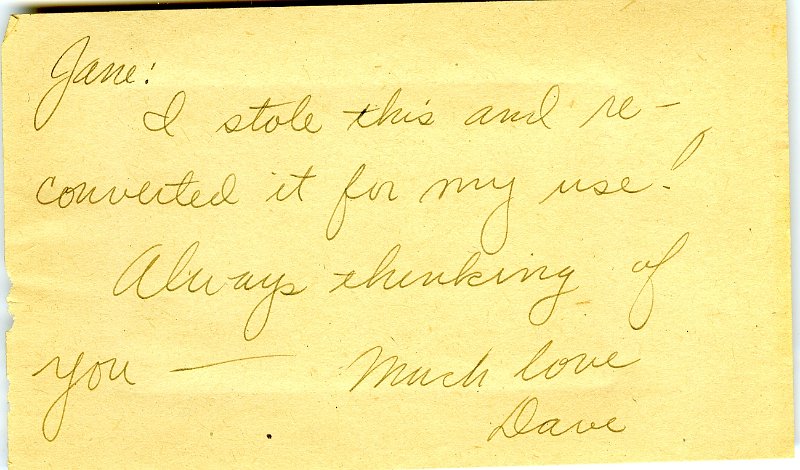 Jane:
I stole this and re-
converted it for my use!
Always thinking of
you — Much love
Dave